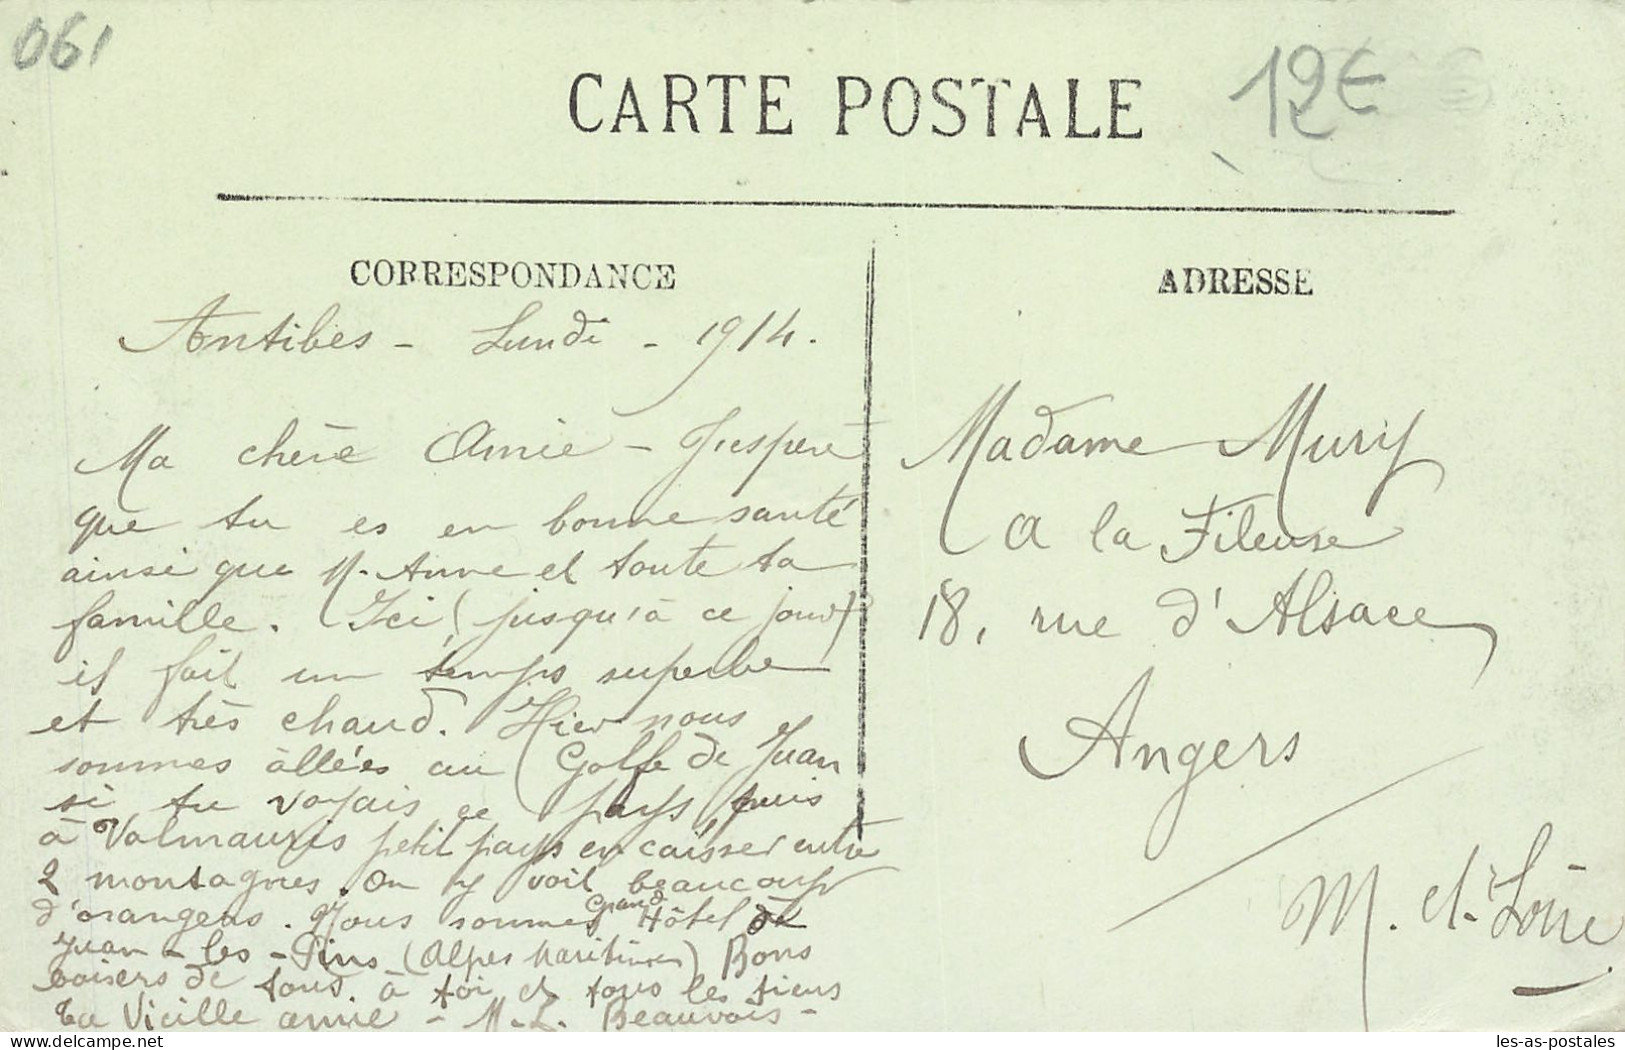 061
CARTE POSTALE
12€
CORRESPONDANCE
Antibes - Lundi - 1914.
Ma chère Amie - J'espère
que tu es en bonne santé
ainsi que M. Anne et toute ta
famille. Ici (jusqu'à ce jour)
il fait un temps superbe
et très chaud. Hier nous
sommes allées au Golfe de Juan
si tu voyais ce pays, puis
à Valmauris petit pays encaisser entre
2 montagnes. On y voit beaucoup
d'orangers. Nous sommes Grand Hôtel de
Juan-les-Pins (Alpes Maritimes) Bons
baisers de tous. à toi et tous les tiens
Ta Vieille amie - M.L. Beauvois -
ADRESSE
Madame Mury
A la Fileuse
18, rue d'Alsace
Angers
M. et-Loire
delcampe.net
les-as-postales